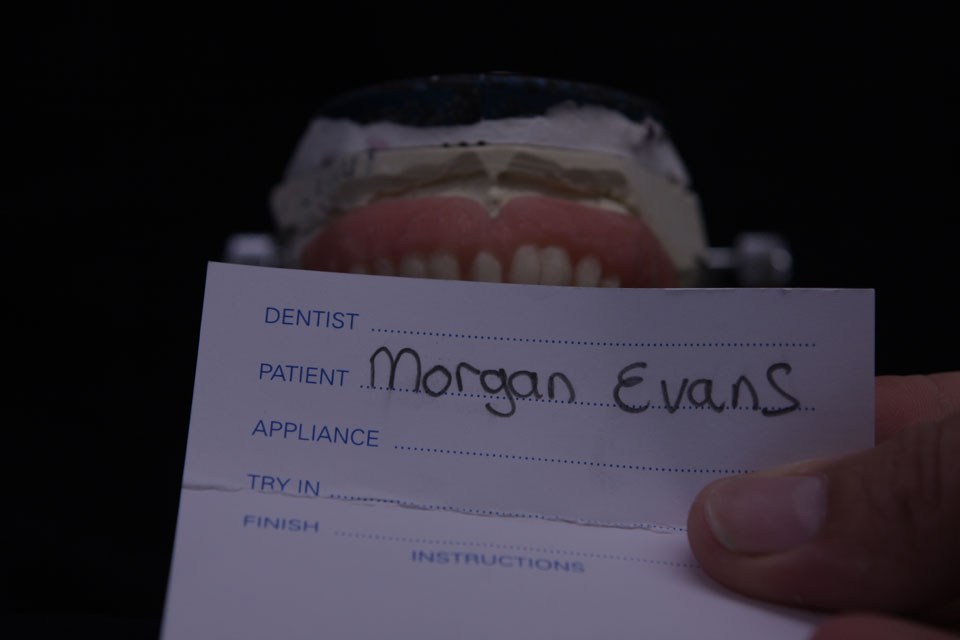 DENTIST
PATIENT Morgan Evans
APPLIANCE
TRY IN
FINISH
INSTRUCTIONS